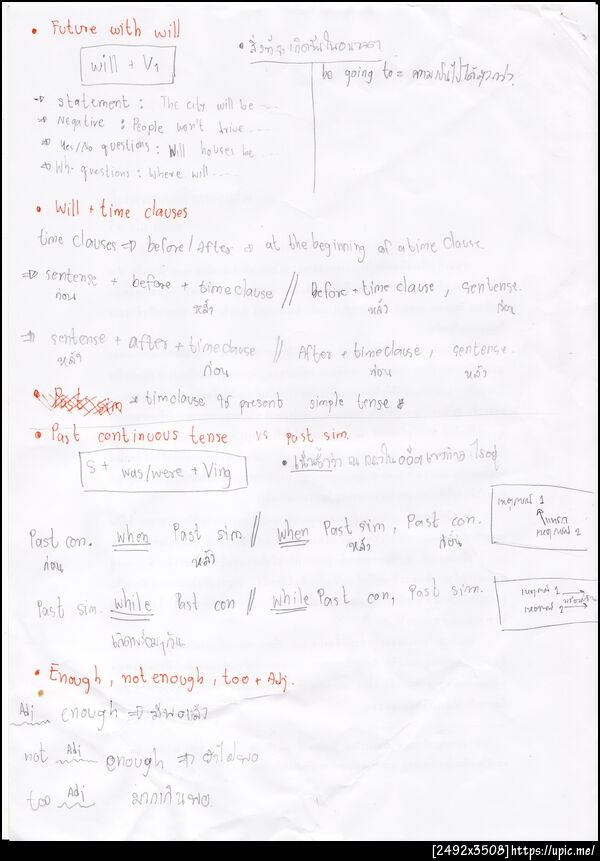 • Future with will
will + V1
• สิ่งที่จะเกิดขึ้นในอนาคต
be going to = ความเป็นไปได้
→ statement : The city will be ....
→ Negative : People won't drive ....
→ Yes/No questions : Will houses be ...
→ Wh- questions : Where will ....
• Will + time clauses
time clauses ⇒ before / After → at the beginning of a time clause
⇒ sentense + before + time clause // Before + time clause , sentense.
ก่อน หลัง หลัง ก่อน
⇒ sentense + after + time clause // After + time clause , sentense.
หลัง ก่อน ก่อน หลัง
• Past sim * timclause ใช้ present simple tense *
• Past continuous tense vs past sim.
S + was/were + Ving
• เน้นย้ำว่า ณ เวลาในอดีต
เหตุการณ์ 1
แทรก
เหตุการณ์ 2
Past con. when Past sim. // when Past sim , Past con.
ก่อน หลัง หลัง ก่อน
Past sim. while Past con // while Past con, Past sim.
เกิดพร้อมๆกัน
เหตุการณ์ 1
เหตุการณ์ 2
• Enough , not enough , too + Adj.
Adj enough ⇒ มีพอแล้ว
not Adj enough ⇒ ยังไม่พอ
too Adj มากเกินพอ
[2492x3508]https://upic.me/